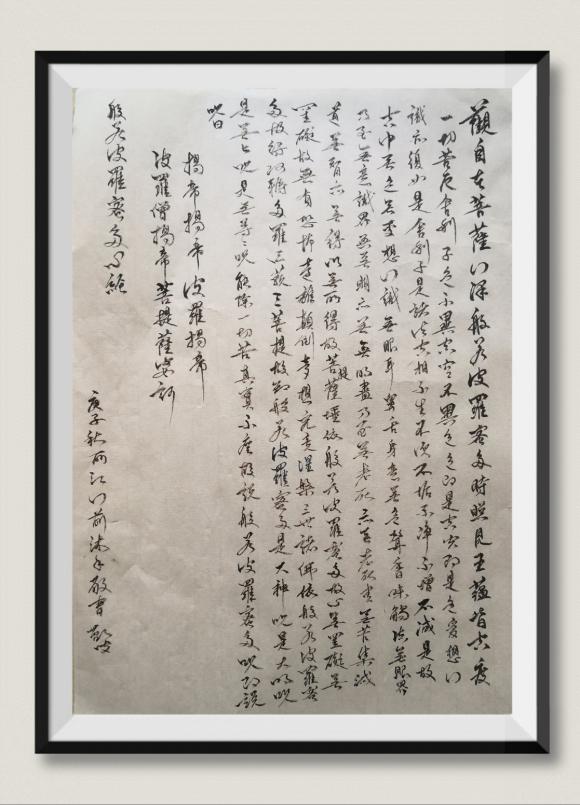 觀自在菩薩行深般若波羅密多時照見五蘊皆空度
一切苦厄舍利子色不異空空不異色色即是空空即是色受想行
識亦復如是舍利子是諸法空相不生不滅不垢不淨不增不減是故
空中無色無受想行識無眼耳鼻舌身意無色聲香味觸法無眼界
乃至無意識界無無明亦無無明盡乃至無老死亦無老死盡無苦集滅
道無智亦無得以無所得故菩提薩埵依般若波羅密多故心無罣礙無
罣礙故無有恐怖遠離顛倒夢想究竟涅槃三世諸佛依般若波羅密
多故得阿耨多羅三藐三菩提故知般若波羅密多是大神咒是大明咒
是無上咒是無等等咒能除一切苦真實不虛故說般若波羅密多咒即說
咒曰
揭帝揭帝波羅揭帝
波羅僧揭帝菩提薩婆訶
般若波羅密多心經
庚子秋西江門前沐手敬書